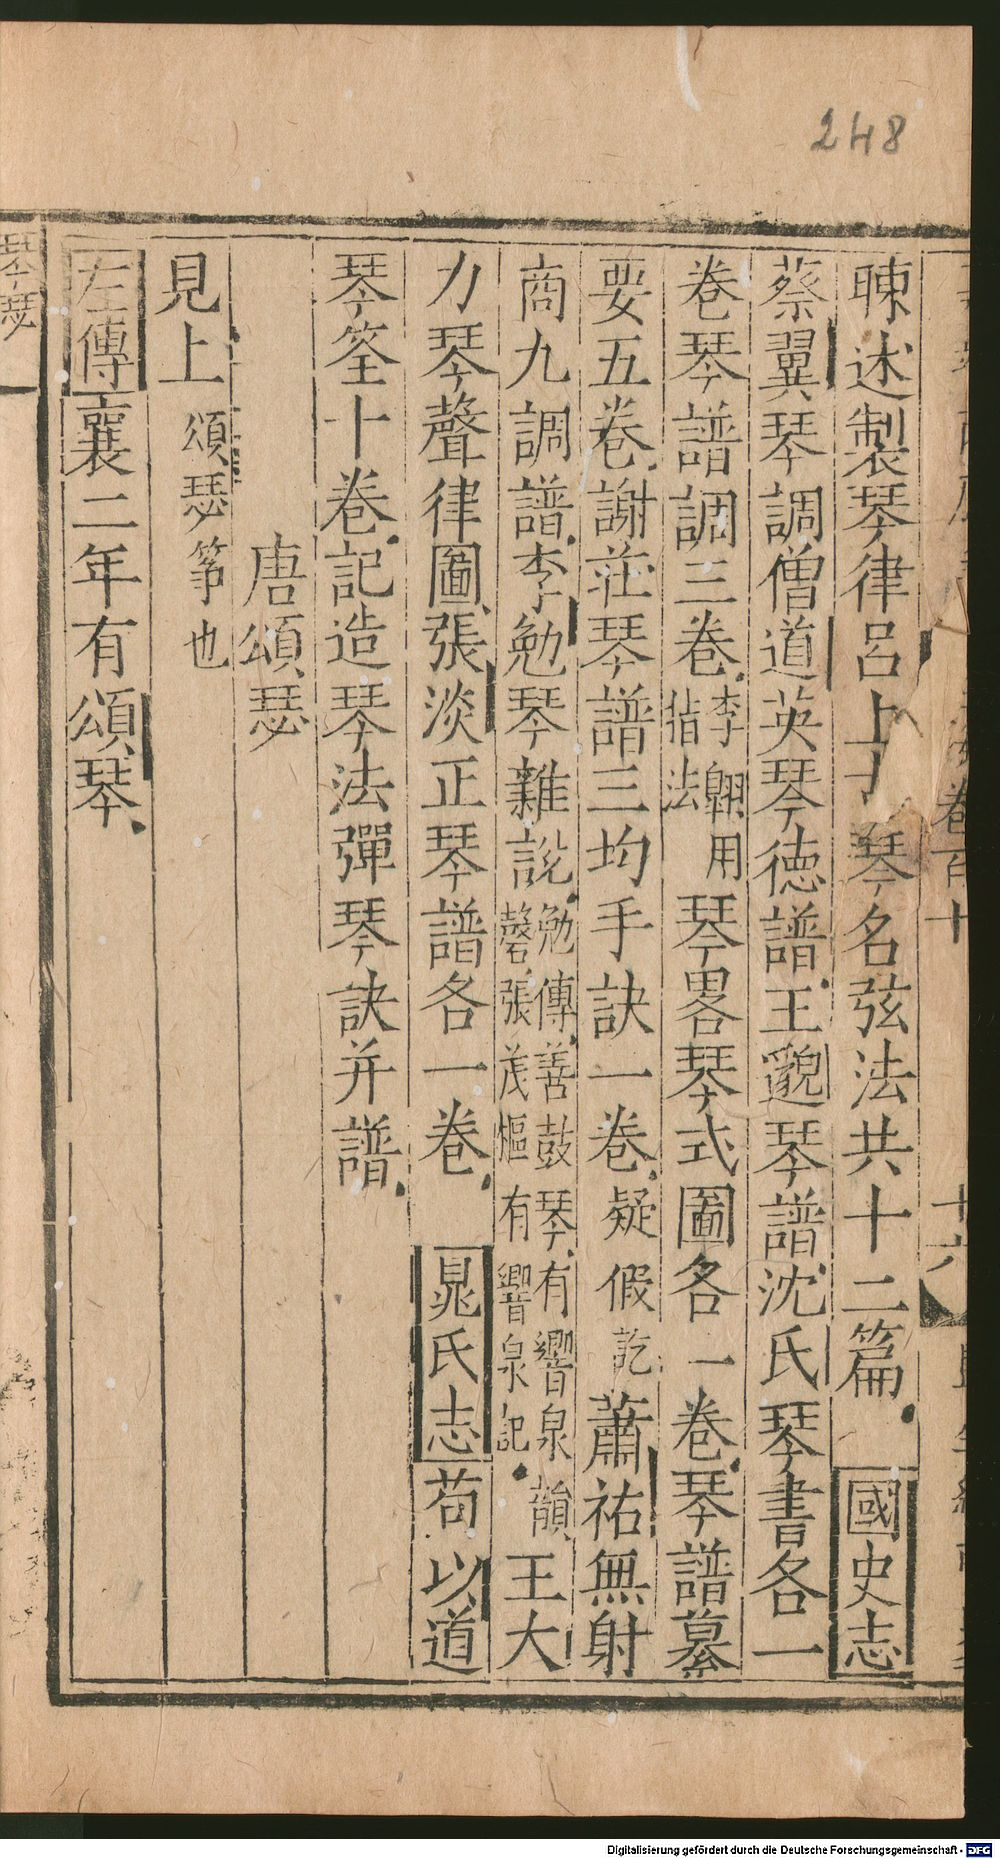 248
暕述製琴律呂上 琴名弦法共十二篇 國史志
蔡翼琴調僧道英琴德譜王邈琴譜沈氏琴書各一
卷琴譜調三卷李翺用指法琴畧琴式圖各一卷琴譜纂
要五卷謝莊琴譜三均手訣一卷疑假訖蕭祐無射
商九調譜李勉琴雜說勉傳善鼓琴有響泉韻磬張茂樞有響泉記王大
力琴聲律圖張淡正琴譜各一卷 晁氏志 荀以道
琴筌十卷記造琴法彈琴訣并譜
唐頌瑟
見上 頌瑟箏也
左傳襄二年有頌琴
卷百十
十六
琴瑟
Digitalisierung gefördert durch die Deutsche Forschungsgemeinschaft - DFG